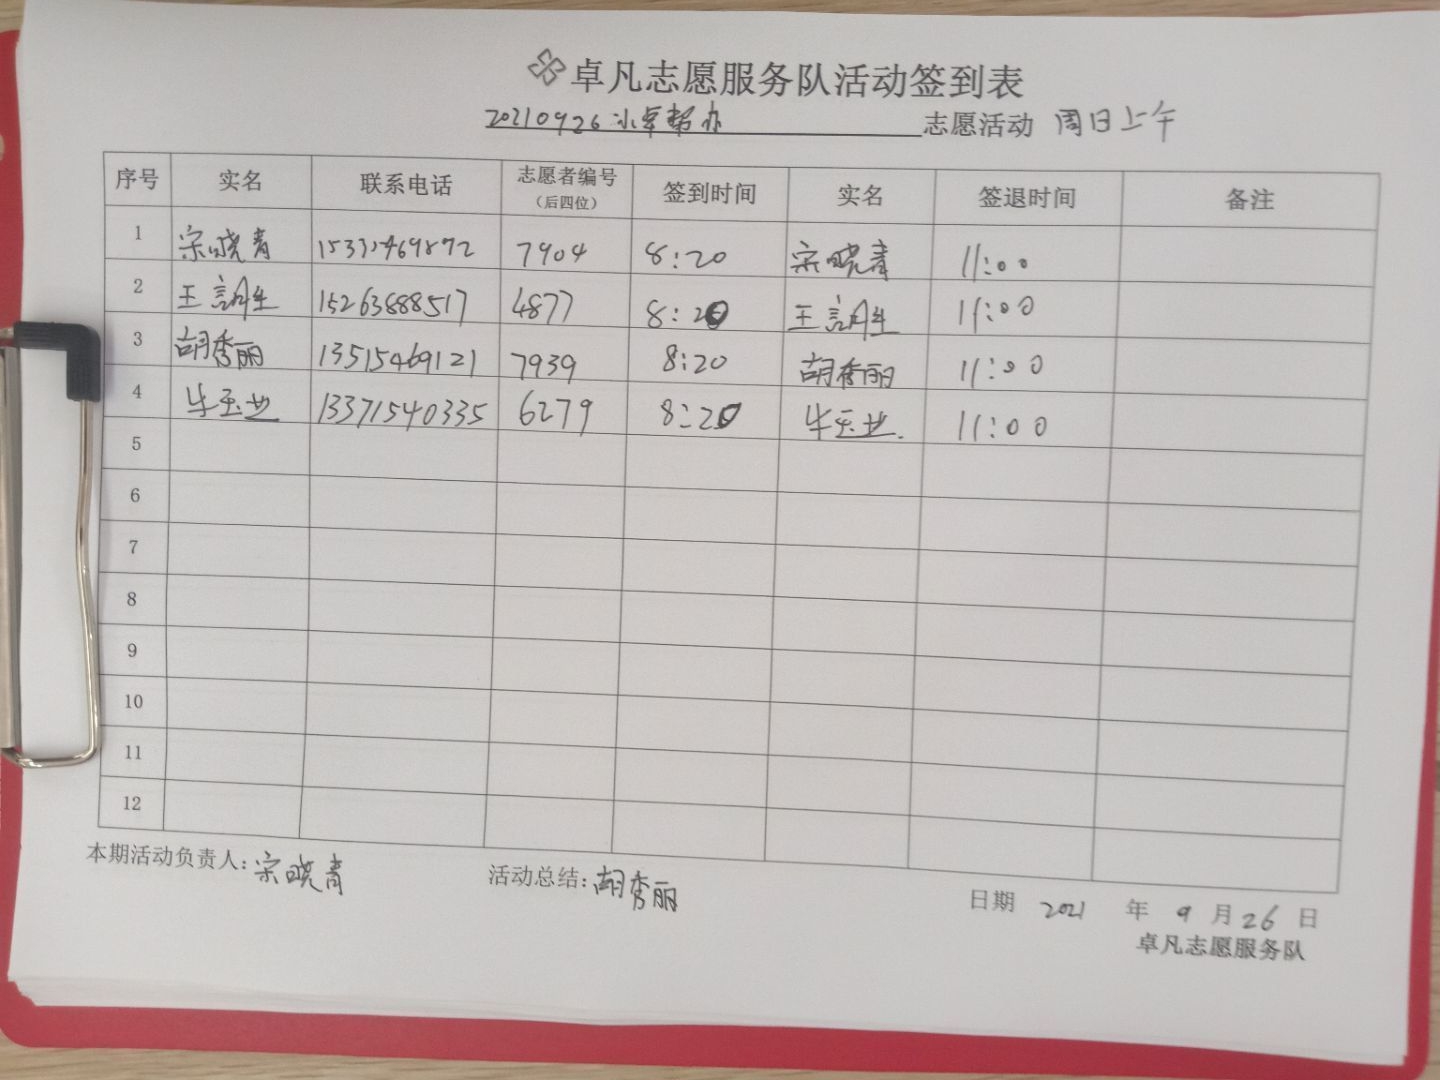 卓凡志愿服务队活动签到表
20210926 小卓帮办 志愿活动 周日上午
序号 实名 联系电话 志愿者编号（后四位） 签到时间 实名 签退时间 备注
1 宋晓青 15331469872 7904 8:20 宋晓青 11:00
2 王 15263888517 4877 8:20 王 11:00
3 胡秀丽 13515469121 7939 8:20 胡秀丽 11:00
4 牛玉业 13371540335 6279 8:20 牛玉业. 11:00
5
6
7
8
9
10
11
12
本期活动负责人: 宋晓青 活动总结: 胡秀丽 日期 2021 年 9 月 26 日
卓凡志愿服务队